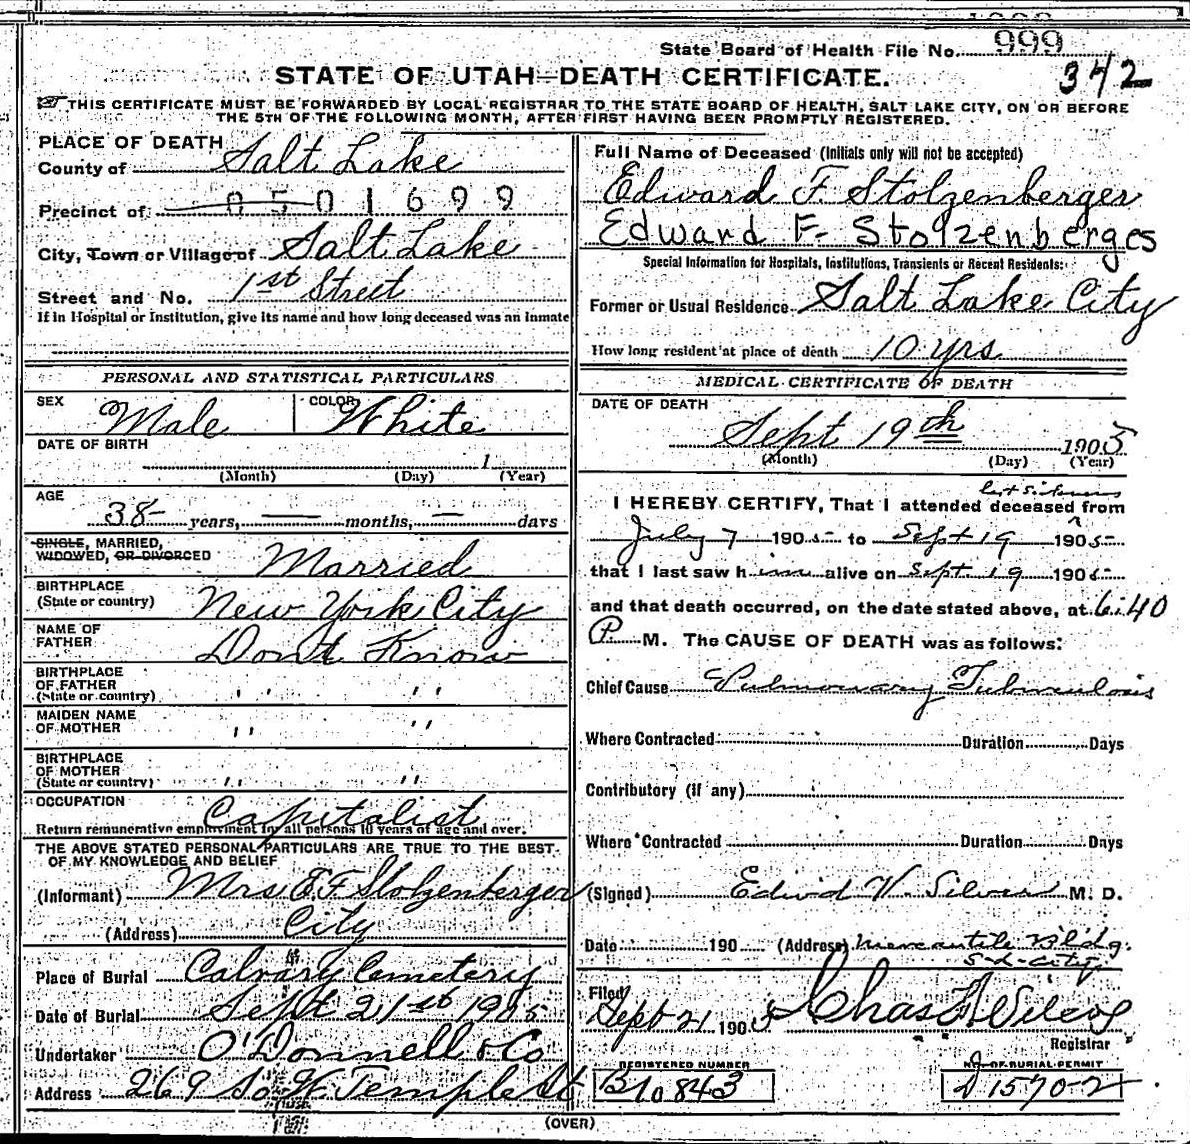 State Board of Health File No. 999
342
STATE OF UTAH—DEATH CERTIFICATE.
THIS CERTIFICATE MUST BE FORWARDED BY LOCAL REGISTRAR TO THE STATE BOARD OF HEALTH, SALT LAKE CITY, ON OR BEFORE
THE 5TH OF THE FOLLOWING MONTH, AFTER FIRST HAVING BEEN PROMPTLY REGISTERED.
PLACE OF DEATH
County of Salt Lake
Precinct of 0501699
City, Town or Village of Salt Lake
Street and No. 1st Street
If in Hospital or Institution, give its name and how long deceased was an inmate
PERSONAL AND STATISTICAL PARTICULARS
SEX Male COLOR White
DATE OF BIRTH
1
(Month) (Day) (Year)
AGE
38 years, — months, — days
SINGLE, MARRIED,
WIDOWED, OR DIVORCED Married
BIRTHPLACE
(State or country) New York City
NAME OF
FATHER Don't Know
BIRTHPLACE
OF FATHER
(State or country) " "
MAIDEN NAME
OF MOTHER " "
BIRTHPLACE
OF MOTHER
(State or country) " "
OCCUPATION Capitalist
Return remunerative employment for all persons 10 years of age and over.
THE ABOVE STATED PERSONAL PARTICULARS ARE TRUE TO THE BEST
OF MY KNOWLEDGE AND BELIEF
(Informant) Mrs E.F Stolzenberger
(Address) City
Place of Burial Calvary Cemetery
Date of Burial Sept 21st 1905
Undertaker O'Donnell & Co
Address 269 So W Temple St
Full Name of Deceased (Initials only will not be accepted)
Edward F. Stolzenberger
Edward F. Stolzenberges
Special Information for Hospitals, Institutions, Transients or Recent Residents:
Former or Usual Residence Salt Lake City
How long resident at place of death 10 yrs
MEDICAL CERTIFICATE OF DEATH
DATE OF DEATH
Sept 19th 1905
(Month) (Day) (Year)
last sickness
I HEREBY CERTIFY, That I attended deceased from
July 7 1905 to Sept 19 1905
that I last saw him alive on Sept 19 1905
and that death occurred, on the date stated above, at 6:40
P. M. The CAUSE OF DEATH was as follows:
Chief Cause Pulmonary Tuberculosis
Where Contracted Duration Days
Contributory (if any)
Where Contracted Duration Days
(Signed) Edwd V. Silver M. D.
Date 190 (Address) Mercantile Bldg.
S-L-City
Filed Sept 21 1905 Chas. F. Wilcox
Registrar
REGISTERED NUMBER
B10843
No. OF BURIAL PERMIT
D 15702
(OVER)